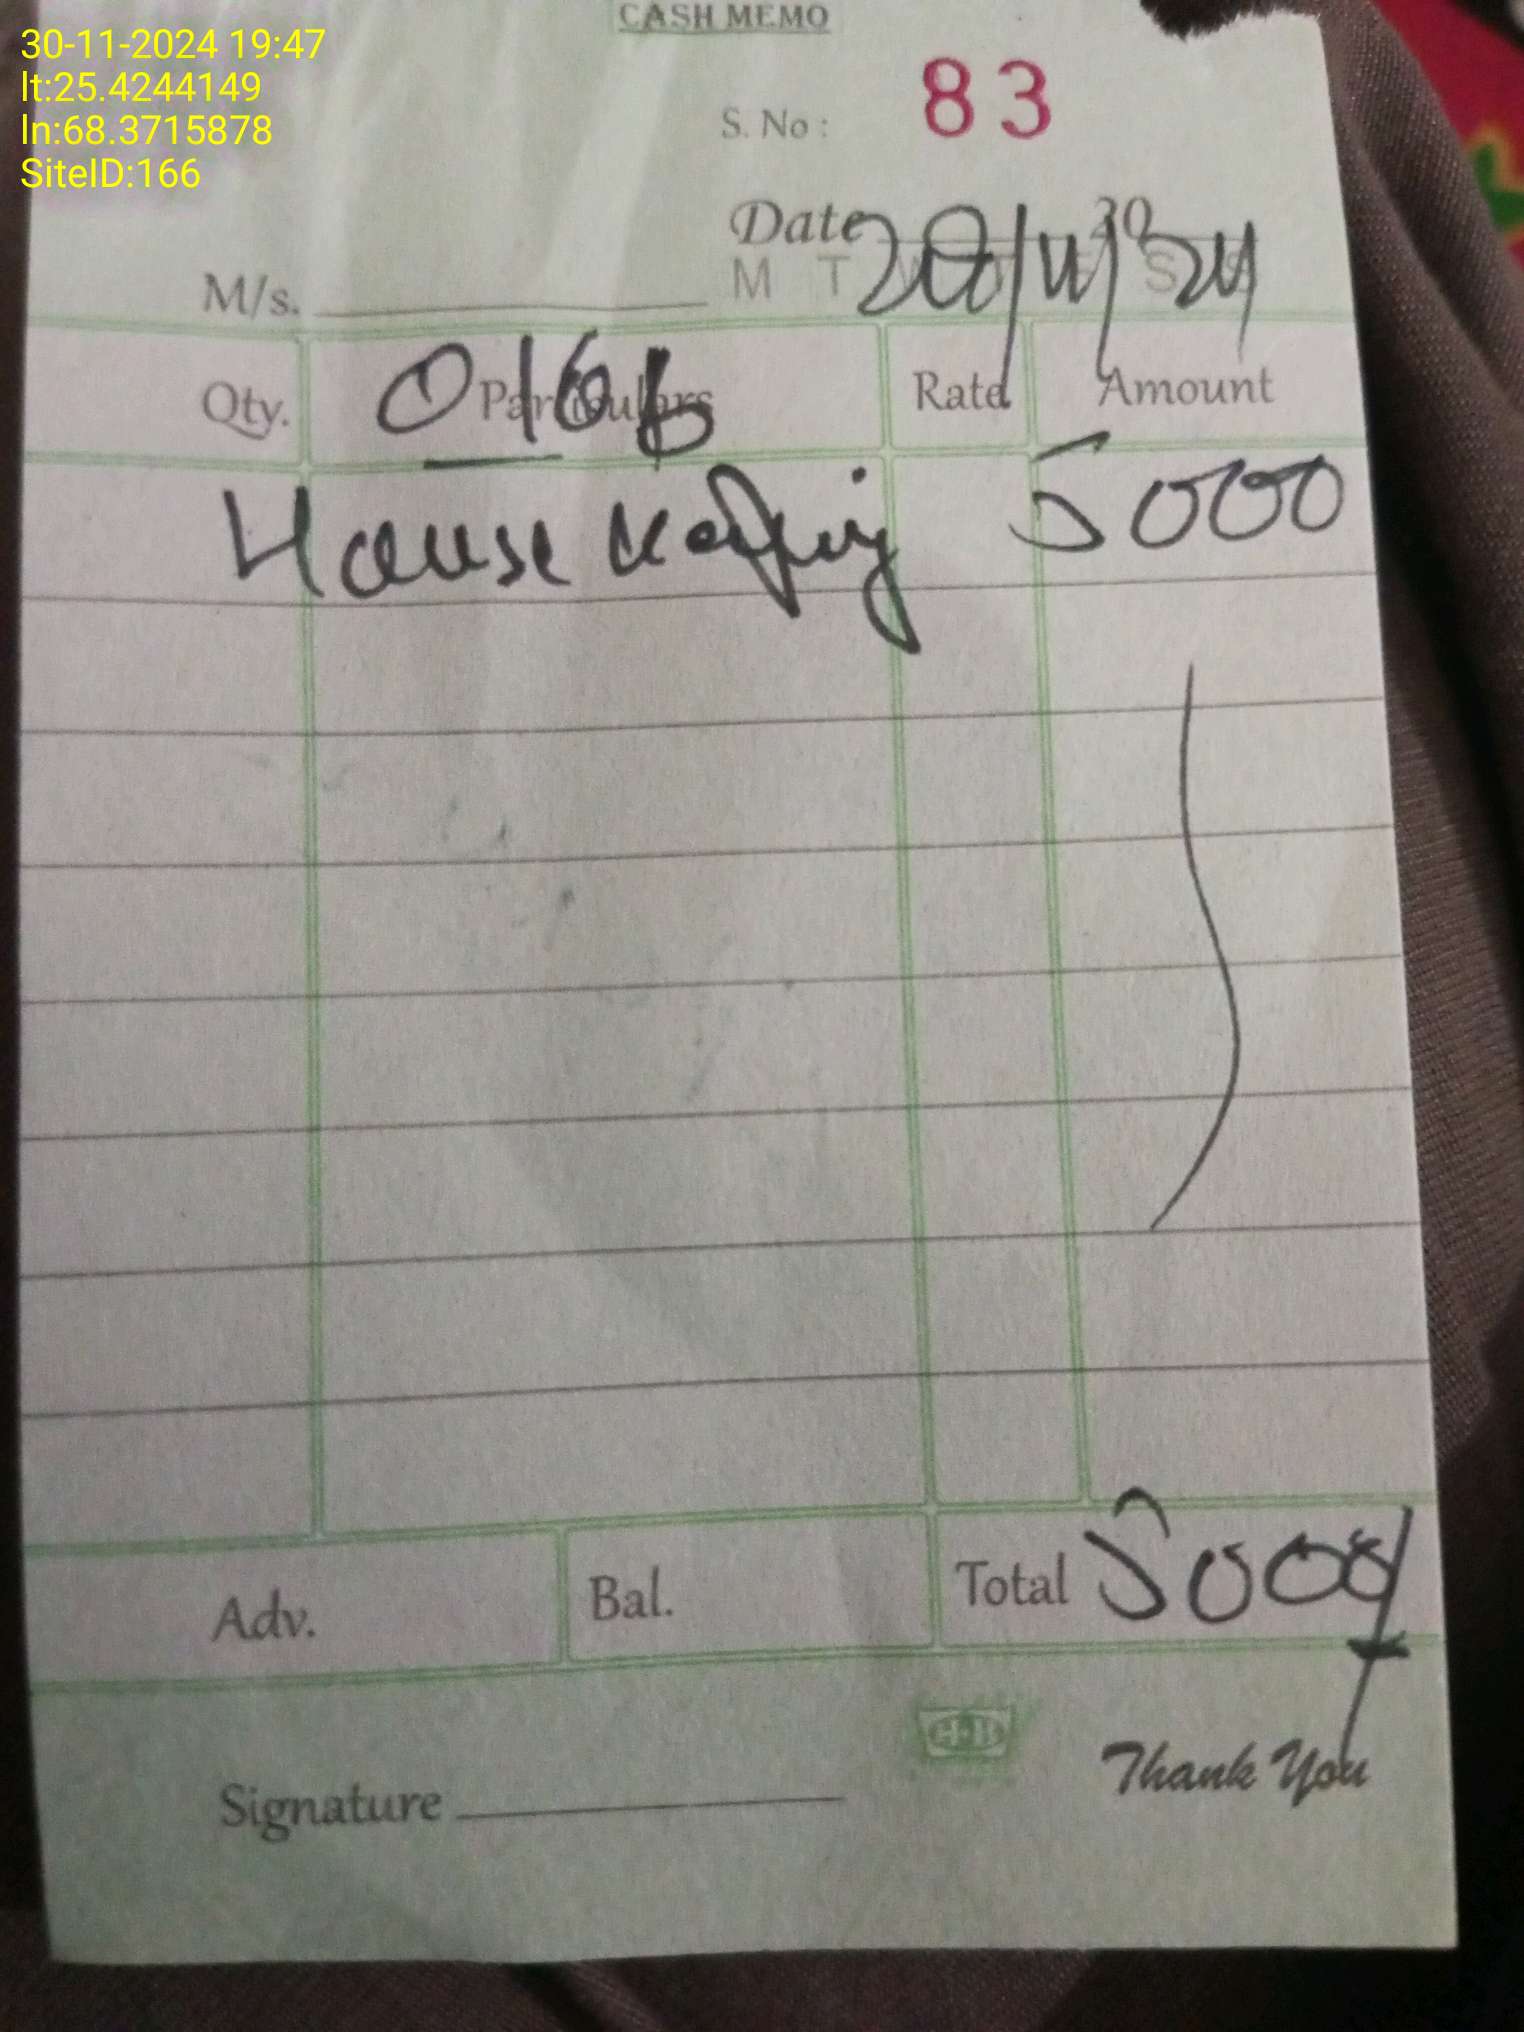 30-11-2024 19:47
lt:25.4244149
ln:68.3715878
SiteID:166
CASH MEMO
S. No : 83
Date 20
M/s.
M T S
Qty. Particulars Rate Amount
0166
House Keeping 5000
Adv. Bal. Total 5000/
Signature
Thank You